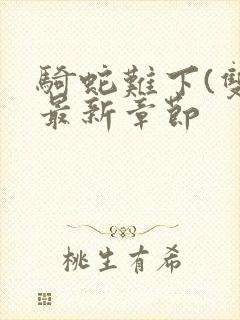 騎蛇難下(雙
最新章節
桃生有希